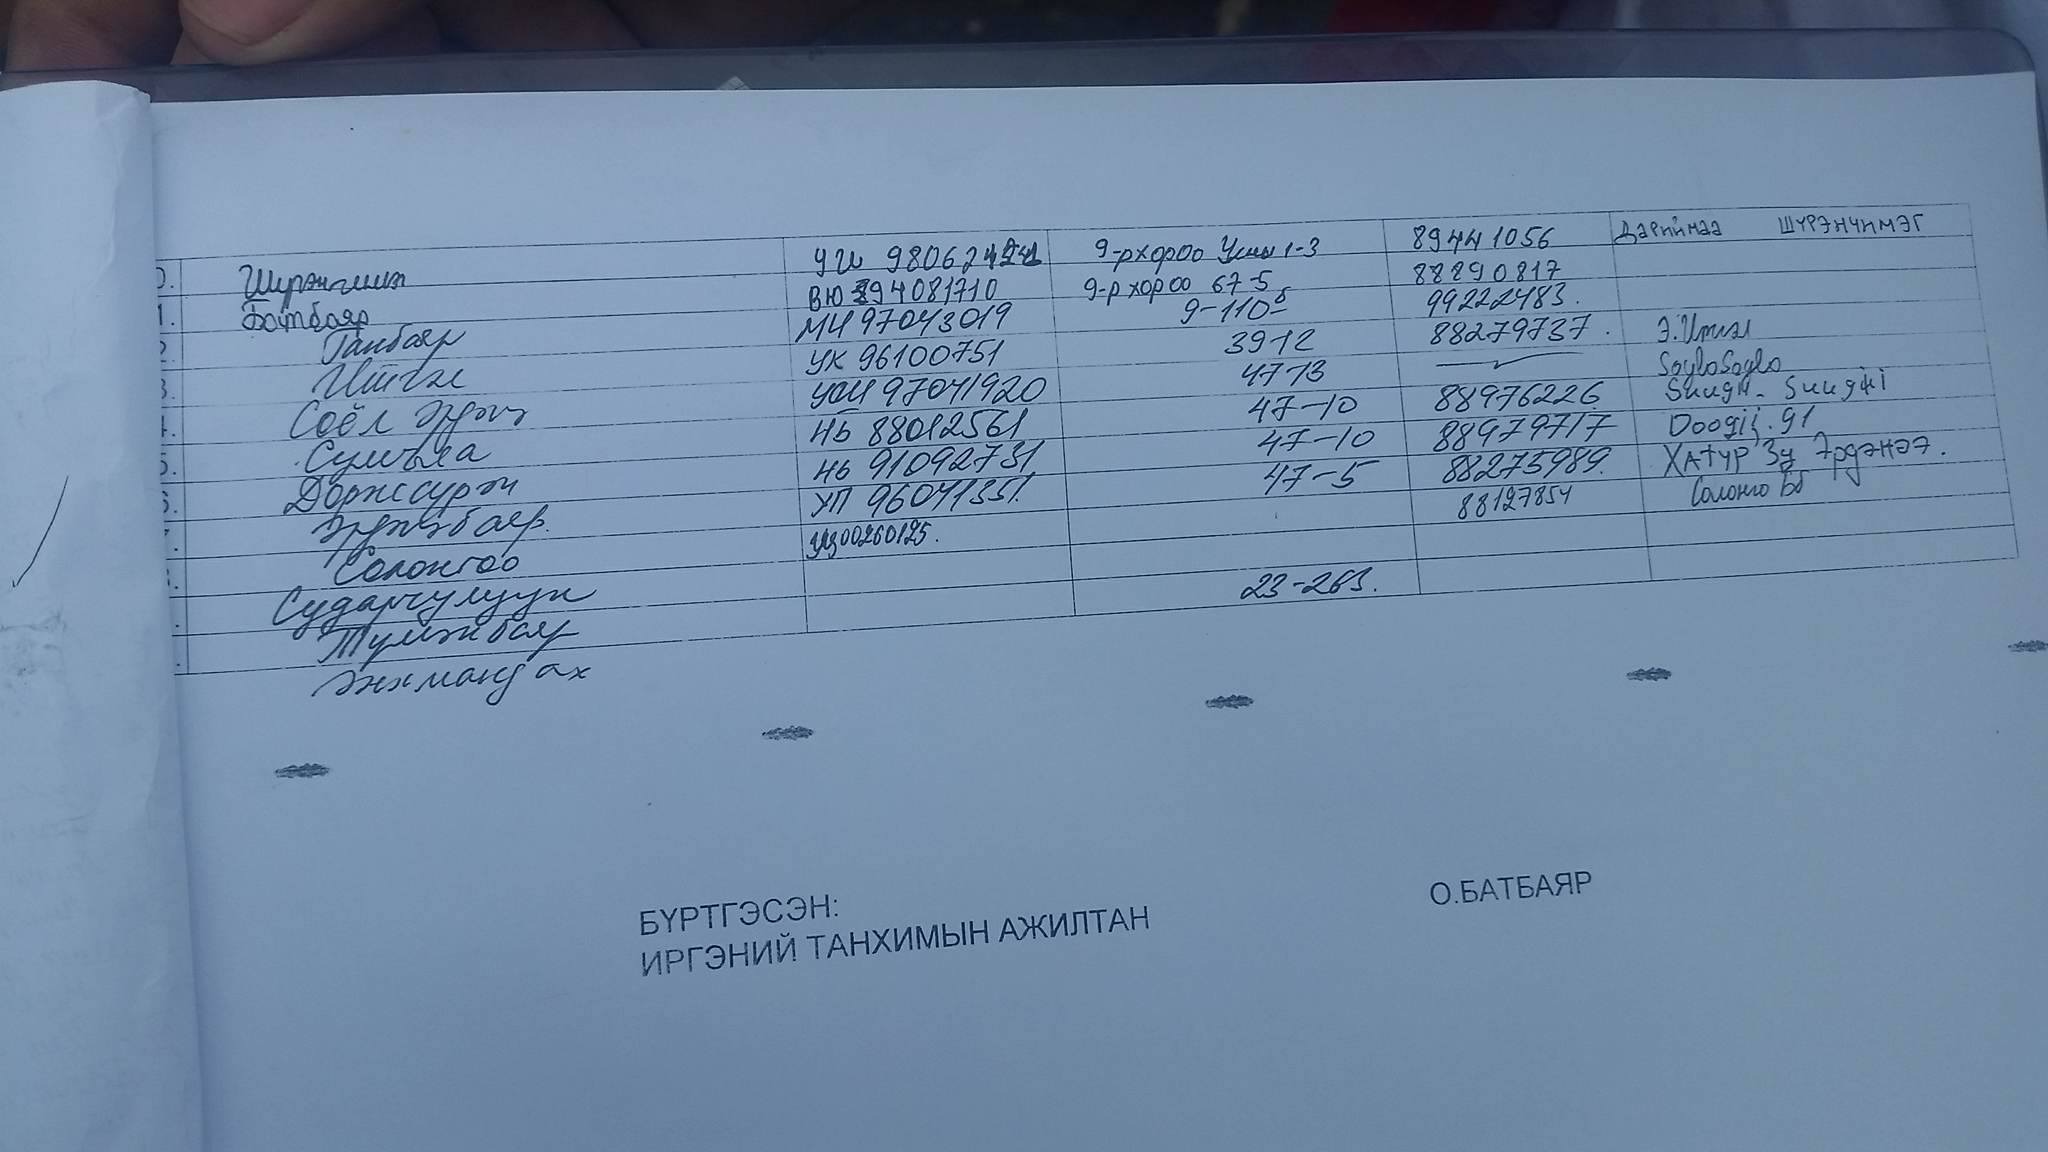 0. Шүрэнчимэг УИ 980624 9-р хороо 1-3 89441056 Дариймаа ШҮРЭНЧИМЭГ
1. Батбаяр ВЮ 94081710 9-р хороо 67-5 88890817
Ганбаяр МЧ 97043019 9-110 99222483.
3. Итгэл УХ 96100751 39-12 88279737. Э.Итгэл
4. Соёл-Эрдэнэ 97041920 47-13 SoyloSoylo
5. Сумъяа НБ 88012561 47-10 88976226
6. Доржсүрэн НБ 91092731 47-10 88979717 Doogii.91
Эрдэнэбаяр. УП 96041351. 47-5 88275989. Хатур Зу Эрдэнээ.
Солонгоо 00260125. 88127854 Солонго
Сударчулуун
Түмэнбаяр 23-263.
Энхмандах
БҮРТГЭСЭН:
ИРГЭНИЙ ТАНХИМЫН АЖИЛТАН О.БАТБАЯР